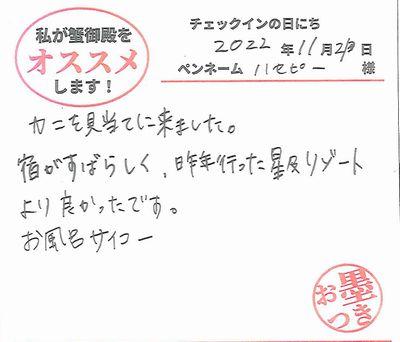 私が蟹御殿を
オススメ
します！
チェックインの日にち
2022年11月2日
ペンネーム ハセピー 様
カニを見当てに来ました。
宿がすばらしく、昨年行った星及リゾート
より良かったです。
お風呂サイコー
お墨つき